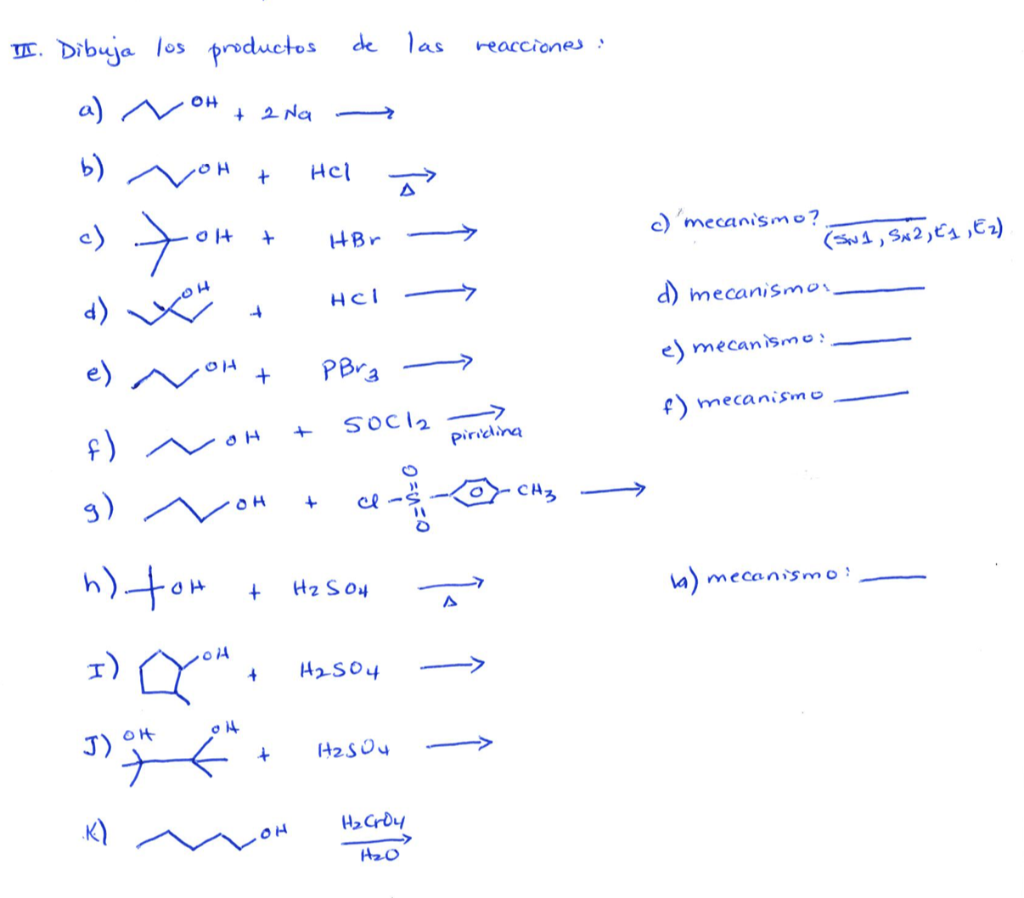 III. Dibuja los productos de las reacciones:
a) OH + 2 Na →
b) OH + HCl → Δ
c) OH + HBr → c) mecanismo? ____ (SN1, SN2, E1, E2)
d) OH + HCl → d) mecanismo: ____
e) OH + PBr3 → e) mecanismo: ____
f) OH + SOCl2 → piridina f) mecanismo ____
g) OH + Cl-S(=O)(=O)- -CH3 →
h) OH + H2SO4 → Δ h) mecanismo: ____
I) OH + H2SO4 →
J) OH OH + H2SO4 →
K) OH H2CrO4 → H2O